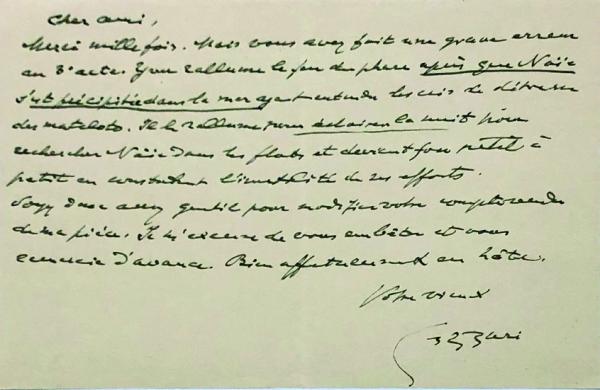 Cher ami,
Merci mille fois. Mais vous avez fait une grave erreur
au 3e acte. Yvon rallume le feu du phare après que Naïc
s'est précipitée dans la mer ayant entendu les cris de détresse
des matelots. Il le rallume pour éclairer la nuit pour
rechercher Naïc dans les flots et devient fou petit à
petit en constatant l'inutilité de ses efforts.
Soyez donc assez gentil pour modifier votre compte rendu
de ma pièce. Je m'excuse de vous embêter et vous
remercie d'avance. Bien affectueusement en hâte.
Votre vieux